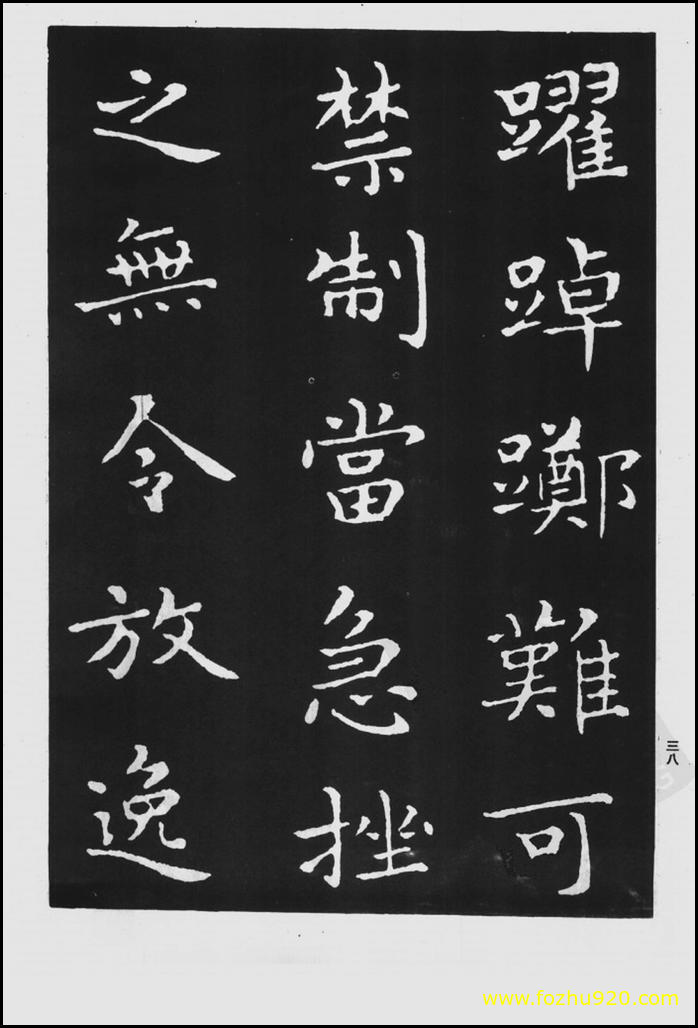 躍踔躑難可
禁制當急挫
之無令放逸
三八
www.fozhu920.com